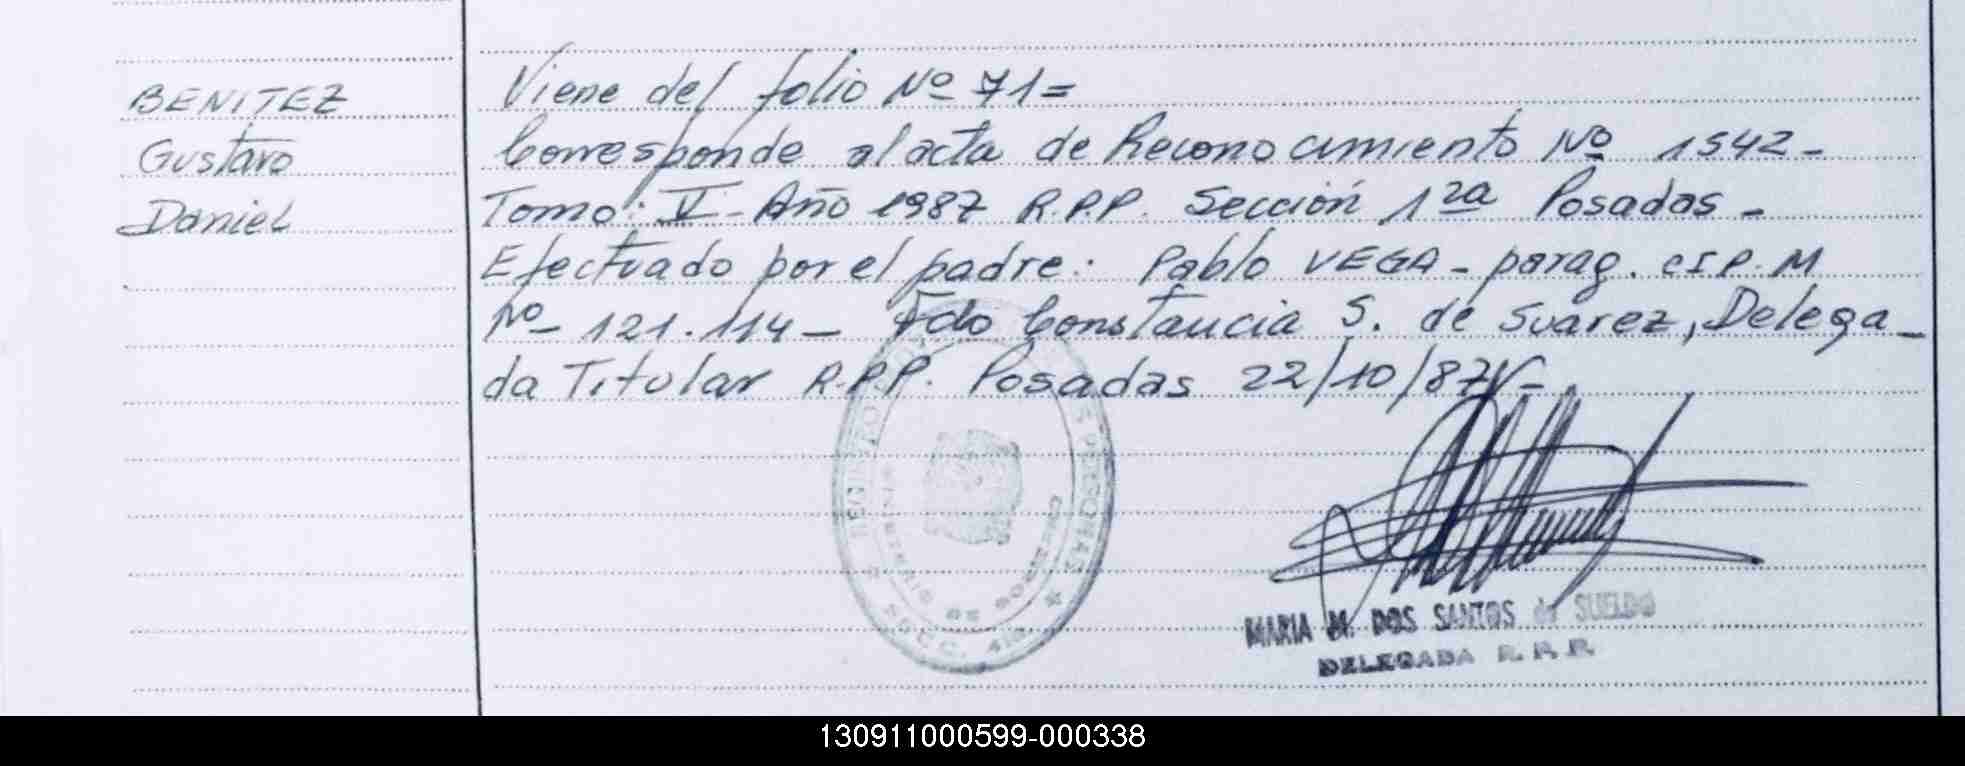 BENITEZ
Gustavo
Daniel
Viene del folio Nº 71=
Corresponde al acta de Reconocimiento Nº 1542-
Tomo: V- Año 1987 R.P.P. Sección 1ra Posadas-
Efectuado por el padre: Pablo VEGA- parag. CIP. M
Nº- 121.114- Fdo Constancia S. de Suarez, Delega-
da Titular R.P.P. Posadas 22/10/87
SECC. 4ta
MARIA M. DOS SANTOS de SUELDO
DELEGADA R.P.P.
130911000599-000338